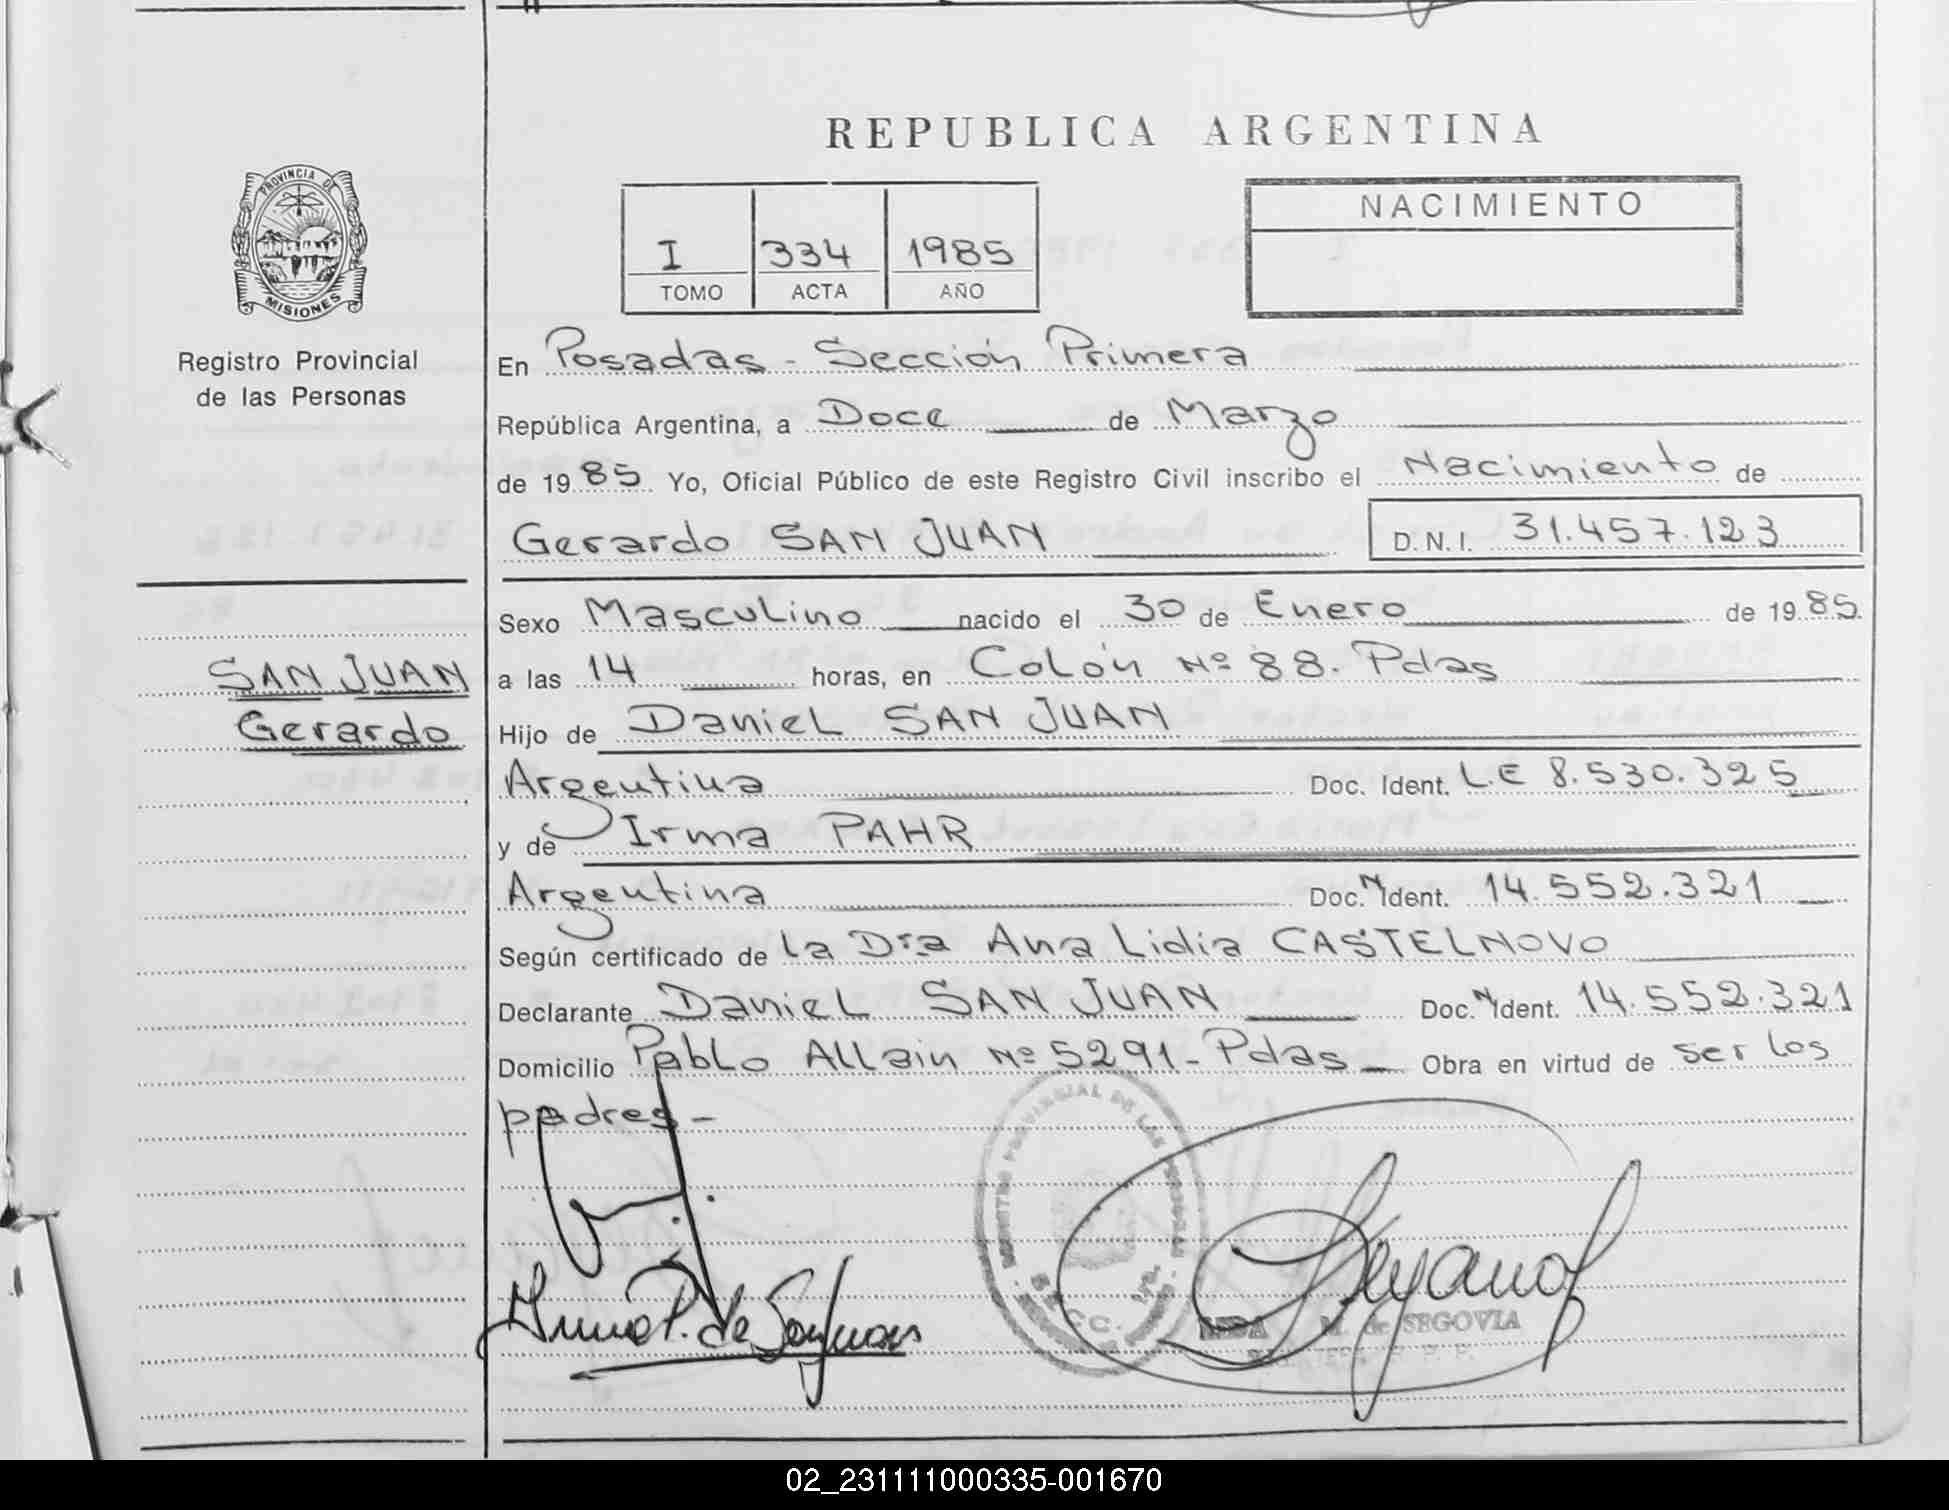 REPUBLICA ARGENTINA
PROVINCIA DE
MISIONES
Registro Provincial
de las Personas
I 334 1985
TOMO ACTA AÑO
NACIMIENTO
En Posadas - Sección Primera
República Argentina, a Doce de Marzo
de 1985 Yo, Oficial Público de este Registro Civil inscribo el Nacimiento de
Gerardo SAN JUAN D.N.I. 31.457.123
SAN JUAN
Gerardo
Sexo Masculino nacido el 30 de Enero de 1985.
a las 14 horas, en Colón Nº 88. Pdas
Hijo de Daniel SAN JUAN
Argentina Doc. Ident. L.E 8.530.325
y de Irma PAHR
Argentina Doc. N Ident. 14.552.321
Según certificado de la Dra Ana Lidia CASTELNOVO
Declarante Daniel SAN JUAN Doc. N Ident. 14.552.321
Domicilio Pablo Allain Nº 5291 - Pdas - Obra en virtud de ser los
padres -
REGISTRO PROVINCIAL DE LAS PERSONAS
P. de San Juan
M. de SEGOVIA
02_231111000335-001670